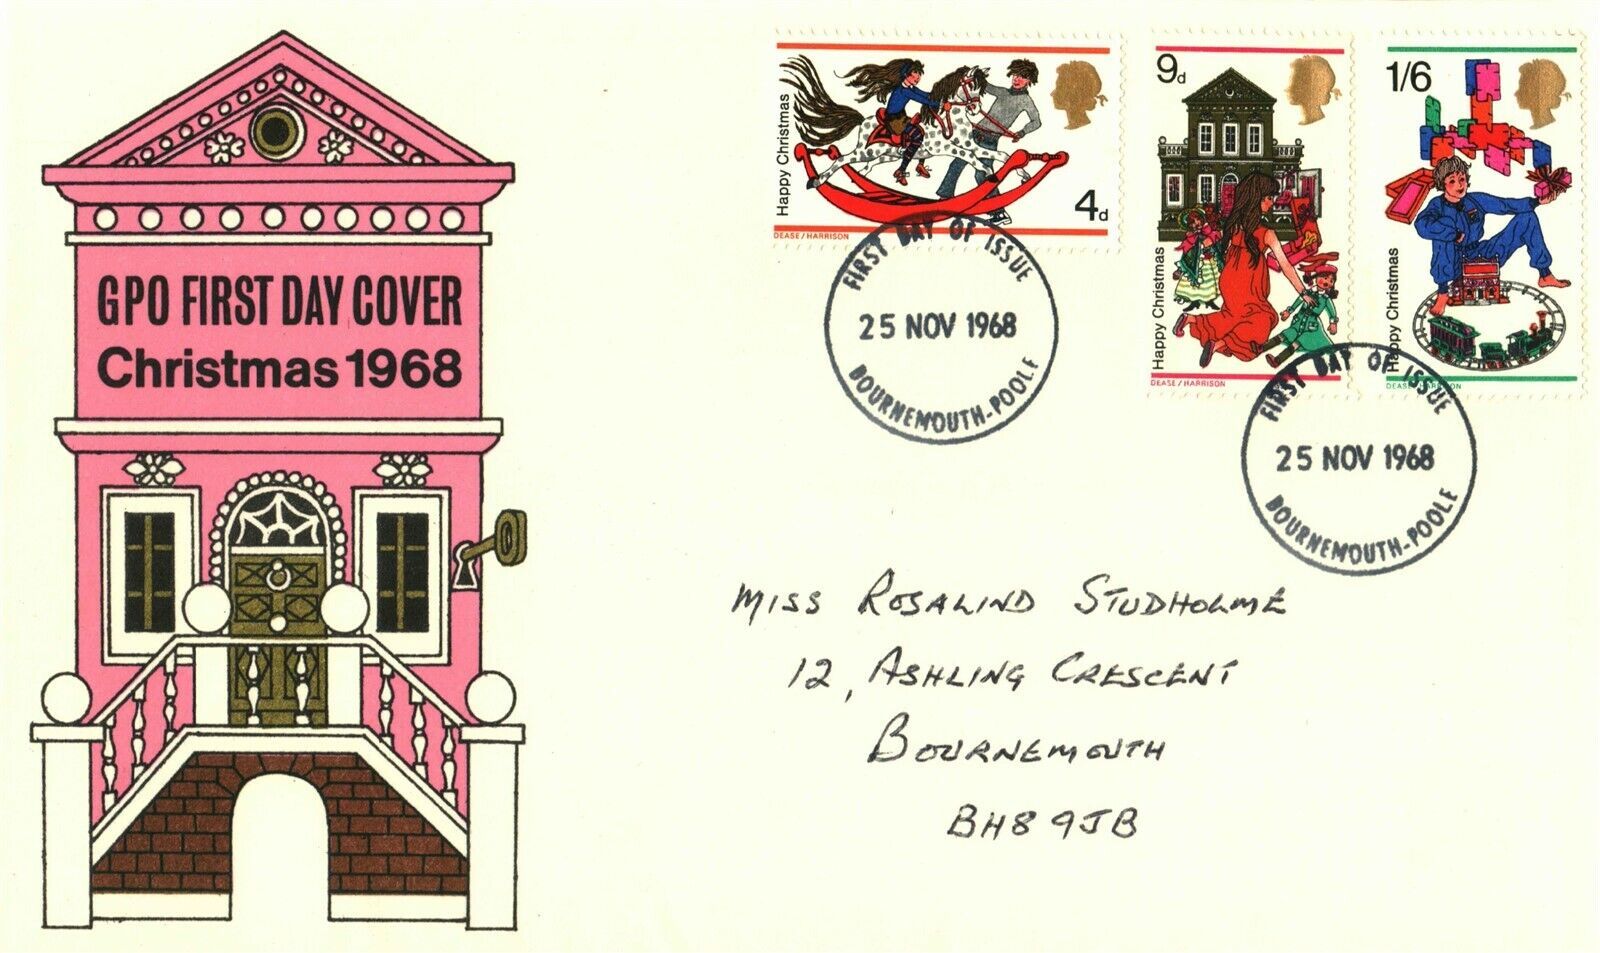 GPO FIRST DAY COVER
Christmas 1968
Happy Christmas
4d
DEASE/HARRISON
9d
Happy Christmas
DEASE/HARRISON
1/6
Happy Christmas
DEASE/HARRISON
FIRST DAY OF ISSUE
25 NOV 1968
BOURNEMOUTH-POOLE
FIRST DAY OF ISSUE
25 NOV 1968
BOURNEMOUTH-POOLE
MISS ROSALIND STUDHOLME
12, ASHLING CRESCENT
BOURNEMOUTH
BH8 9JB